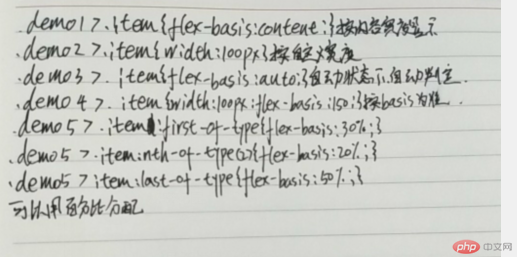 .demo1>.item{flex-basis:content;}按内容宽度显示
.demo2>.item{width:100px}按自定义宽度
.demo3>.item{flex-basis:auto;}自动状态下,自动判定.
.demo4>.item{width:100px;flex-basis:150;}按basis为准.
.demo5>.item:first-of-type{flex-basis:30%;}
.demo5>.item:nth-of-type(2){flex-basis:20%;}
.demo5>item:last-of-type{flex-basis:50%;}
可以用百分比分配
php 中文网